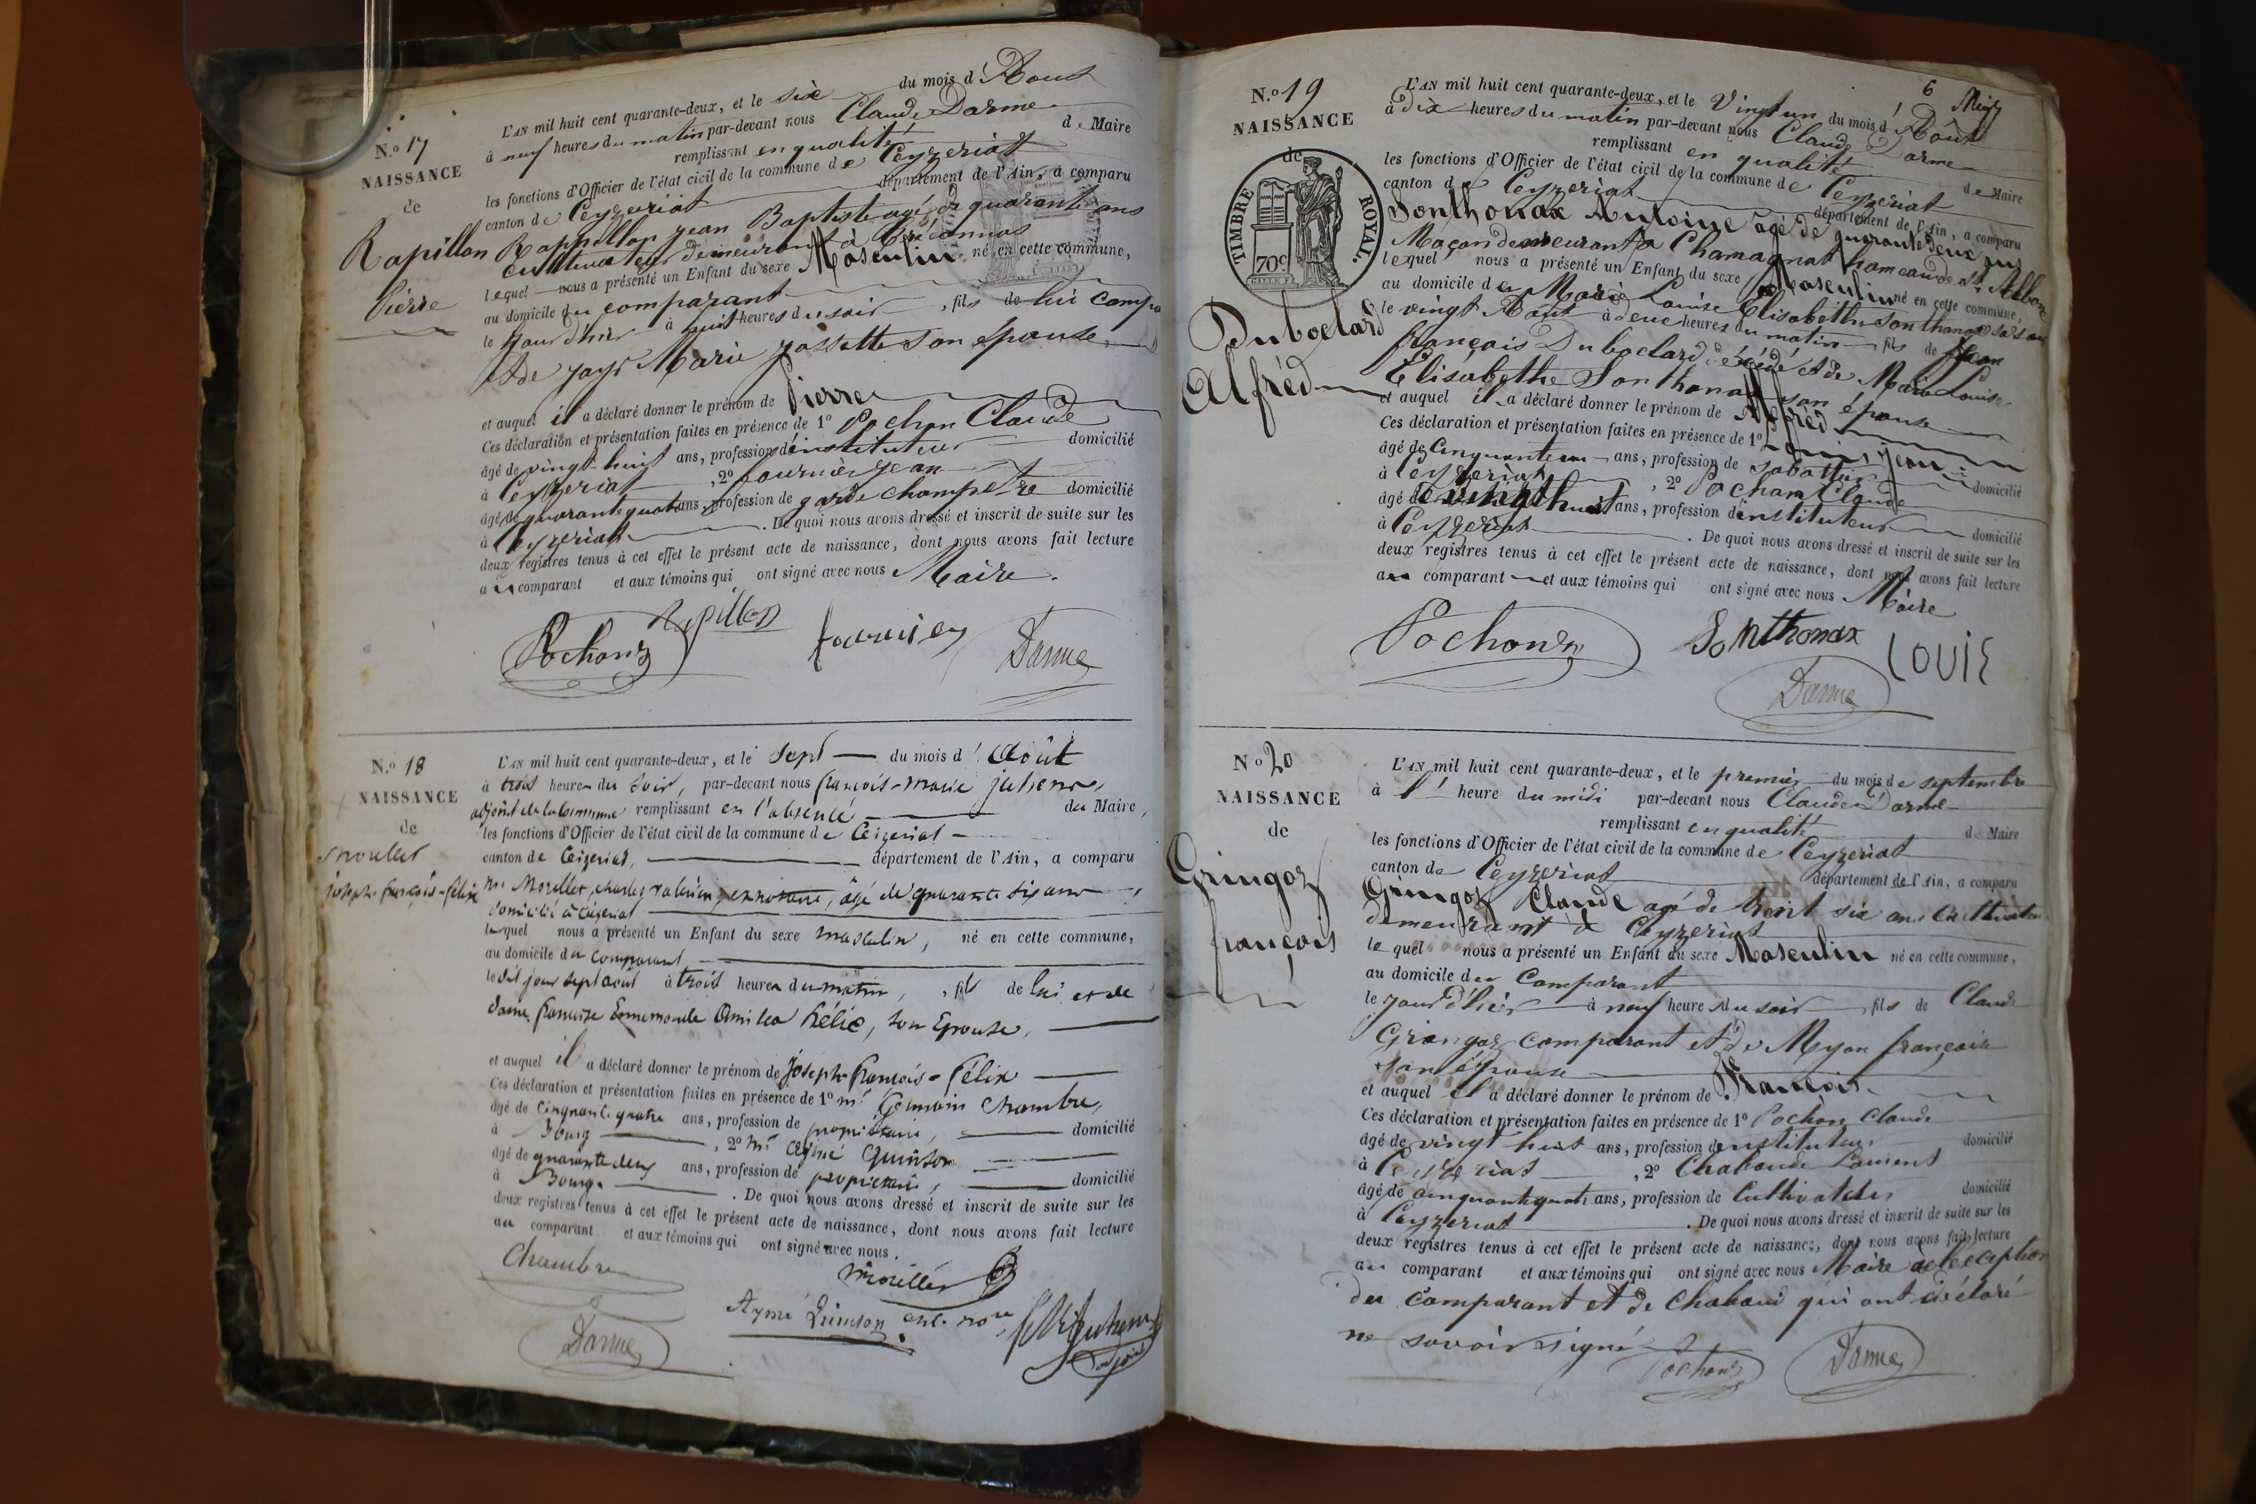 N.º 17
NAISSANCE
de
Rapillon
Pierre
L'AN mil huit cent quarante-deux, et le six du mois d'Aout
à neuf heures du matin par-devant nous Claude Darme
remplissant en qualité de Maire
les fonctions d'Officier de l'état civil de la commune de Ceyzeriat
canton de Ceyzeriat département de l'Ain, a comparu
Rappillon jean Baptiste agé de quarante ans
cultivateur demeurant à
lequel nous a présenté un Enfant du sexe Masculin né en cette commune,
au domicile du comparant
le jour d'hier à huit heures du soir, fils de lui compa
et de jayr Marie josette son épouse
et auquel il a déclaré donner le prénom de Pierre
Ces déclaration et présentation faites en présence de 1º Pochon Claude
âgé de vingt-huit ans, profession d'instituteur domicilié
à Ceyzeriat, 2º fournier jean
âgé de quarante quatre ans, profession de garde champetre domicilié
à Ceyzeriat. De quoi nous avons dressé et inscrit de suite sur les
deux registres tenus à cet effet le présent acte de naissance, dont nous avons fait lecture
au comparant et aux témoins qui ont signé avec nous Maire.
Rapillon
Pochon fournier Darme
N.º 18
NAISSANCE
de
Morellet
joseph-françois-félix
L'AN mil huit cent quarante-deux, et le sept du mois d'Août
à trois heures du soir, par-devant nous françois-marie juhem
adjoint de la commune remplissant en l'absence du Maire,
les fonctions d'Officier de l'état civil de la commune de Ceizeriat
canton de Ceizeriat, département de l'Ain, a comparu
Mr Morellet, charles valerien, exnotaire, âgé de quarante six ans
domicilié à Ceizeriat
lequel nous a présenté un Enfant du sexe masculin, né en cette commune,
au domicile du comparant
ledit jour sept août à trois heures du matin, fils de lui et de
dame françoise Ennemonde félix, son Epouse,
et auquel il a déclaré donner le prénom de joseph-françois-félix
Ces déclaration et présentation faites en présence de 1º mr Germain Chambre,
âgé de cinquante quatre ans, profession de propriétaire, domicilié
à Bourg, 2º mr Aymé Quinson
âgé de quarante deux ans, profession de propriétaire, domicilié
à Bourg. De quoi nous avons dressé et inscrit de suite sur les
deux registres tenus à cet effet le présent acte de naissance, dont nous avons fait lecture
au comparant et aux témoins qui ont signé avec nous.
Chambre Morellet
Aymé Quinson
Darme adjoint
6
N.º 19
NAISSANCE
de
TIMBRE ROYAL.
70c.
Duboclard
Alfréd
L'AN mil huit cent quarante-deux, et le Vingt un du mois d'Août
à dix heures du matin par-devant nous Claude Darme
remplissant en qualité de Maire
les fonctions d'Officier de l'état civil de la commune de Ceyzeriat
canton de Ceyzeriat département de l'Ain, a comparu
Sonthonax Antoine agé de quarante deux ans
Maçon demeurant à Chamagnat hameau de St Alban
lequel nous a présenté un Enfant du sexe Masculin né en cette commune,
au domicile de Marie Louise Elisabethe Sonthonax sa soeur
le vingt Aout à deux heures du matin fils de jean
françois Duboclard décédé et de Marie Louise
Elisabethe Sonthonax son épouse
et auquel il a déclaré donner le prénom de Alfréd
Ces déclaration et présentation faites en présence de 1º Louis jean
âgé de Cinquante un ans, profession de sabotier domicilié
à Ceyzeriat, 2º Pochon Claude
âgé de vingt huit ans, profession d'instituteur domicilié
à Ceyzeriat. De quoi nous avons dressé et inscrit de suite sur les
deux registres tenus à cet effet le présent acte de naissance, dont nous avons fait lecture
au comparant et aux témoins qui ont signé avec nous Maire
Pochon Sonthonax LOUIS
Darme
Nº 20
NAISSANCE
de
Gringoz
françois
L'AN mil huit cent quarante-deux, et le premier du mois de septembre
à l' heure du midi par-devant nous Claude Darme
remplissant en qualité de Maire
les fonctions d'Officier de l'état civil de la commune de Ceyzeriat
canton de Ceyzeriat département de l'Ain, a comparu
Gringoz Claude agé de trent six ans Cultivateur
demeurant à Ceyzeriat
lequel nous a présenté un Enfant du sexe Masculin né en cette commune,
au domicile du Comparant
le jour d'hier à neuf heures du soir, fils de Claude
Gringoz comparant et de Myon françoise
son épouse
et auquel il a déclaré donner le prénom de François
Ces déclaration et présentation faites en présence de 1º Pochon Claude
âgé de vingt huit ans, profession d'instituteur domicilié
à Ceyzeriat, 2º Chabaud Laurent
âgé de cinquante quatre ans, profession de Cultivateur domicilié
à Ceyzeriat. De quoi nous avons dressé et inscrit de suite sur les
deux registres tenus à cet effet le présent acte de naissance, dont nous avons fait lecture
au comparant et aux témoins qui ont signé avec nous Maire à l'exception
du Comparant et de Chabaud qui ont déclaré
ne savoir signé
Pochon Darme